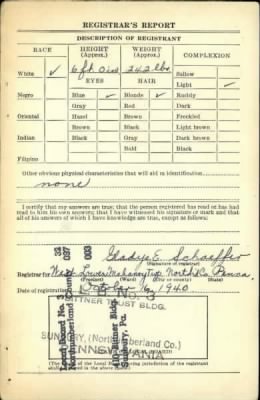 REGISTRAR'S REPORT
DESCRIPTION OF REGISTRANT
RACE HEIGHT (Approx.) WEIGHT (Approx.) COMPLEXION
White ✓ 6 ft 0 ins 242 lbs. Sallow
EYES HAIR Light ✓
Negro Blue ✓ Blonde ✓ Ruddy
Gray Red Dark
Oriental Hazel Brown Freckled
Brown Black Light brown
Indian Black Gray Dark brown
Bald Black
Filipino
Other obvious physical characteristics that will aid in identification
none
I certify that my answers are true; that the person registered has read or has had
read to him his own answers; that I have witnessed his signature or mark and that
all of his answers of which I have knowledge are true, except as follows:
Gladys E. Schaeffer
Registrar for Lower Mahanoy Twp. North'd Co. Penna.
Date of registration October 16, 1940
Local Board No. 3
Northumberland County
32
097
003
BITTNER TRUST BLDG.
SUNBURY, (Northumberland Co.)
PENNSYLVANIA